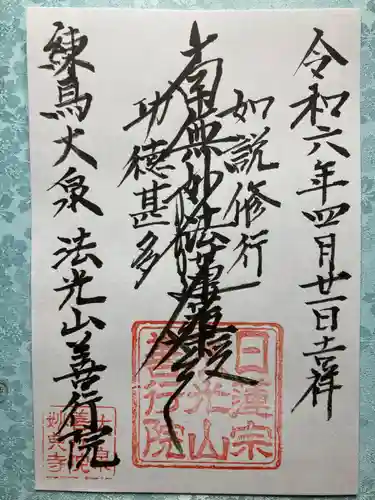 令和六年四月廿一日吉祥
如説修行
南無妙法蓮華経
功徳甚多
練馬大泉 法光山善行院
日蓮宗
法光山
善行院
妙典寺